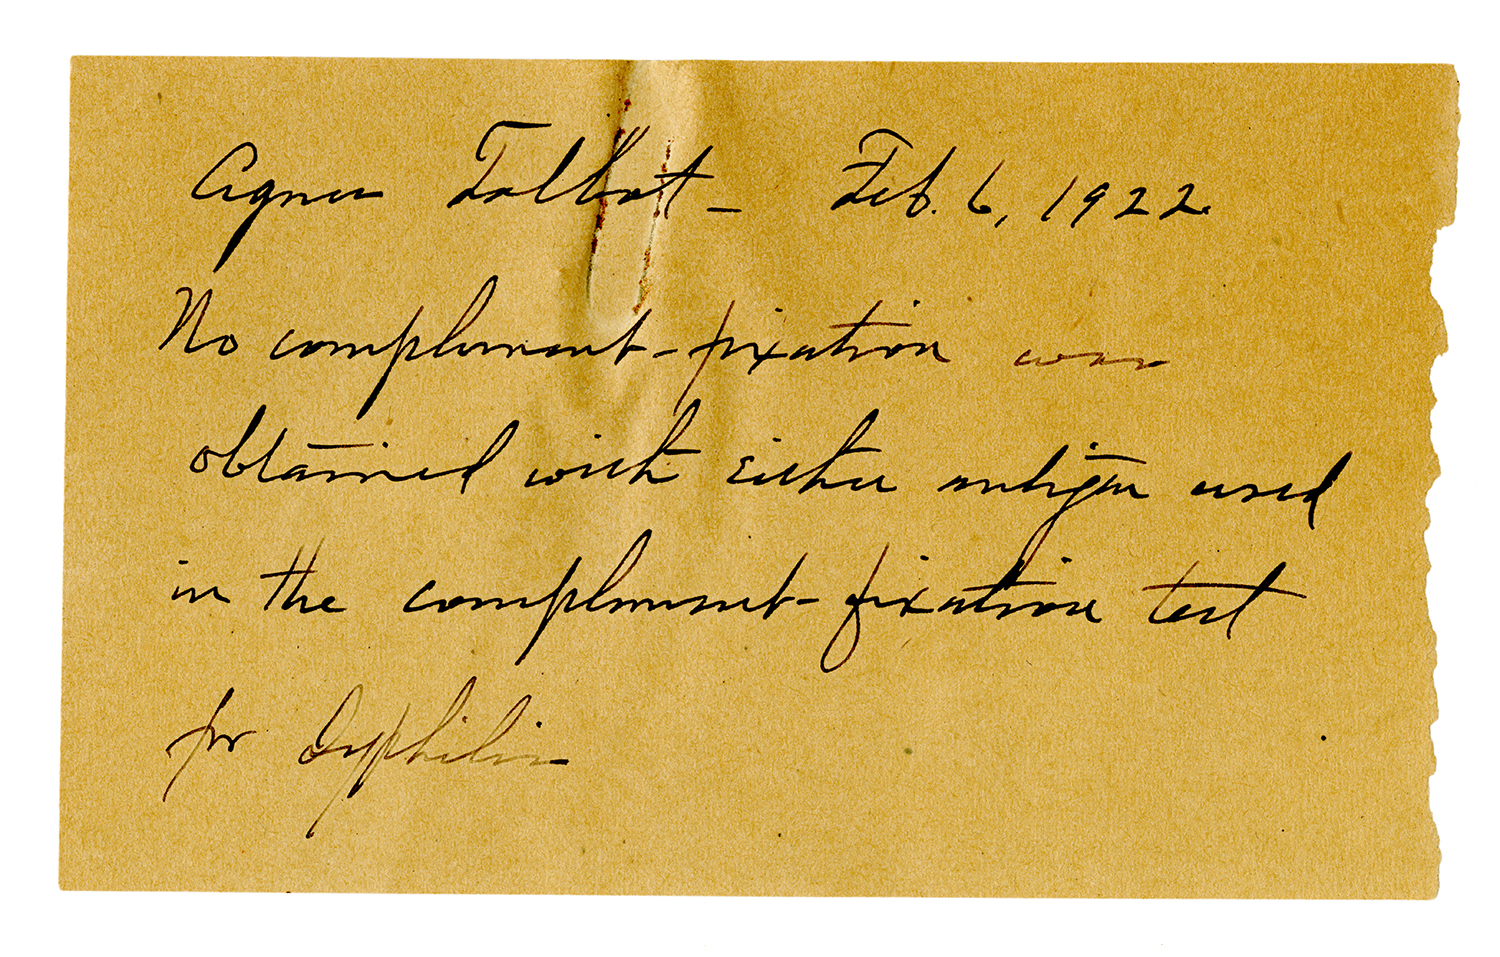 Agnes Talbot - Feb. 6, 1922.
No complement-fixation was
obtained with either antigen used
in the complement-fixation test
for Syphilis